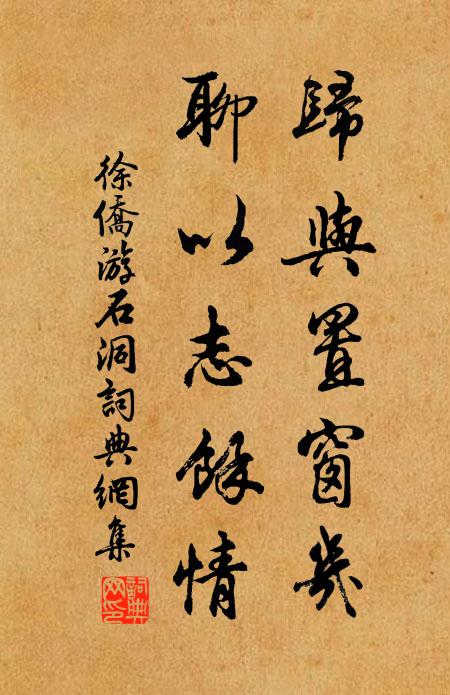 歸與置窗幾
聊以志餘情
徐僑游石洞詞典網集
詞典
网印